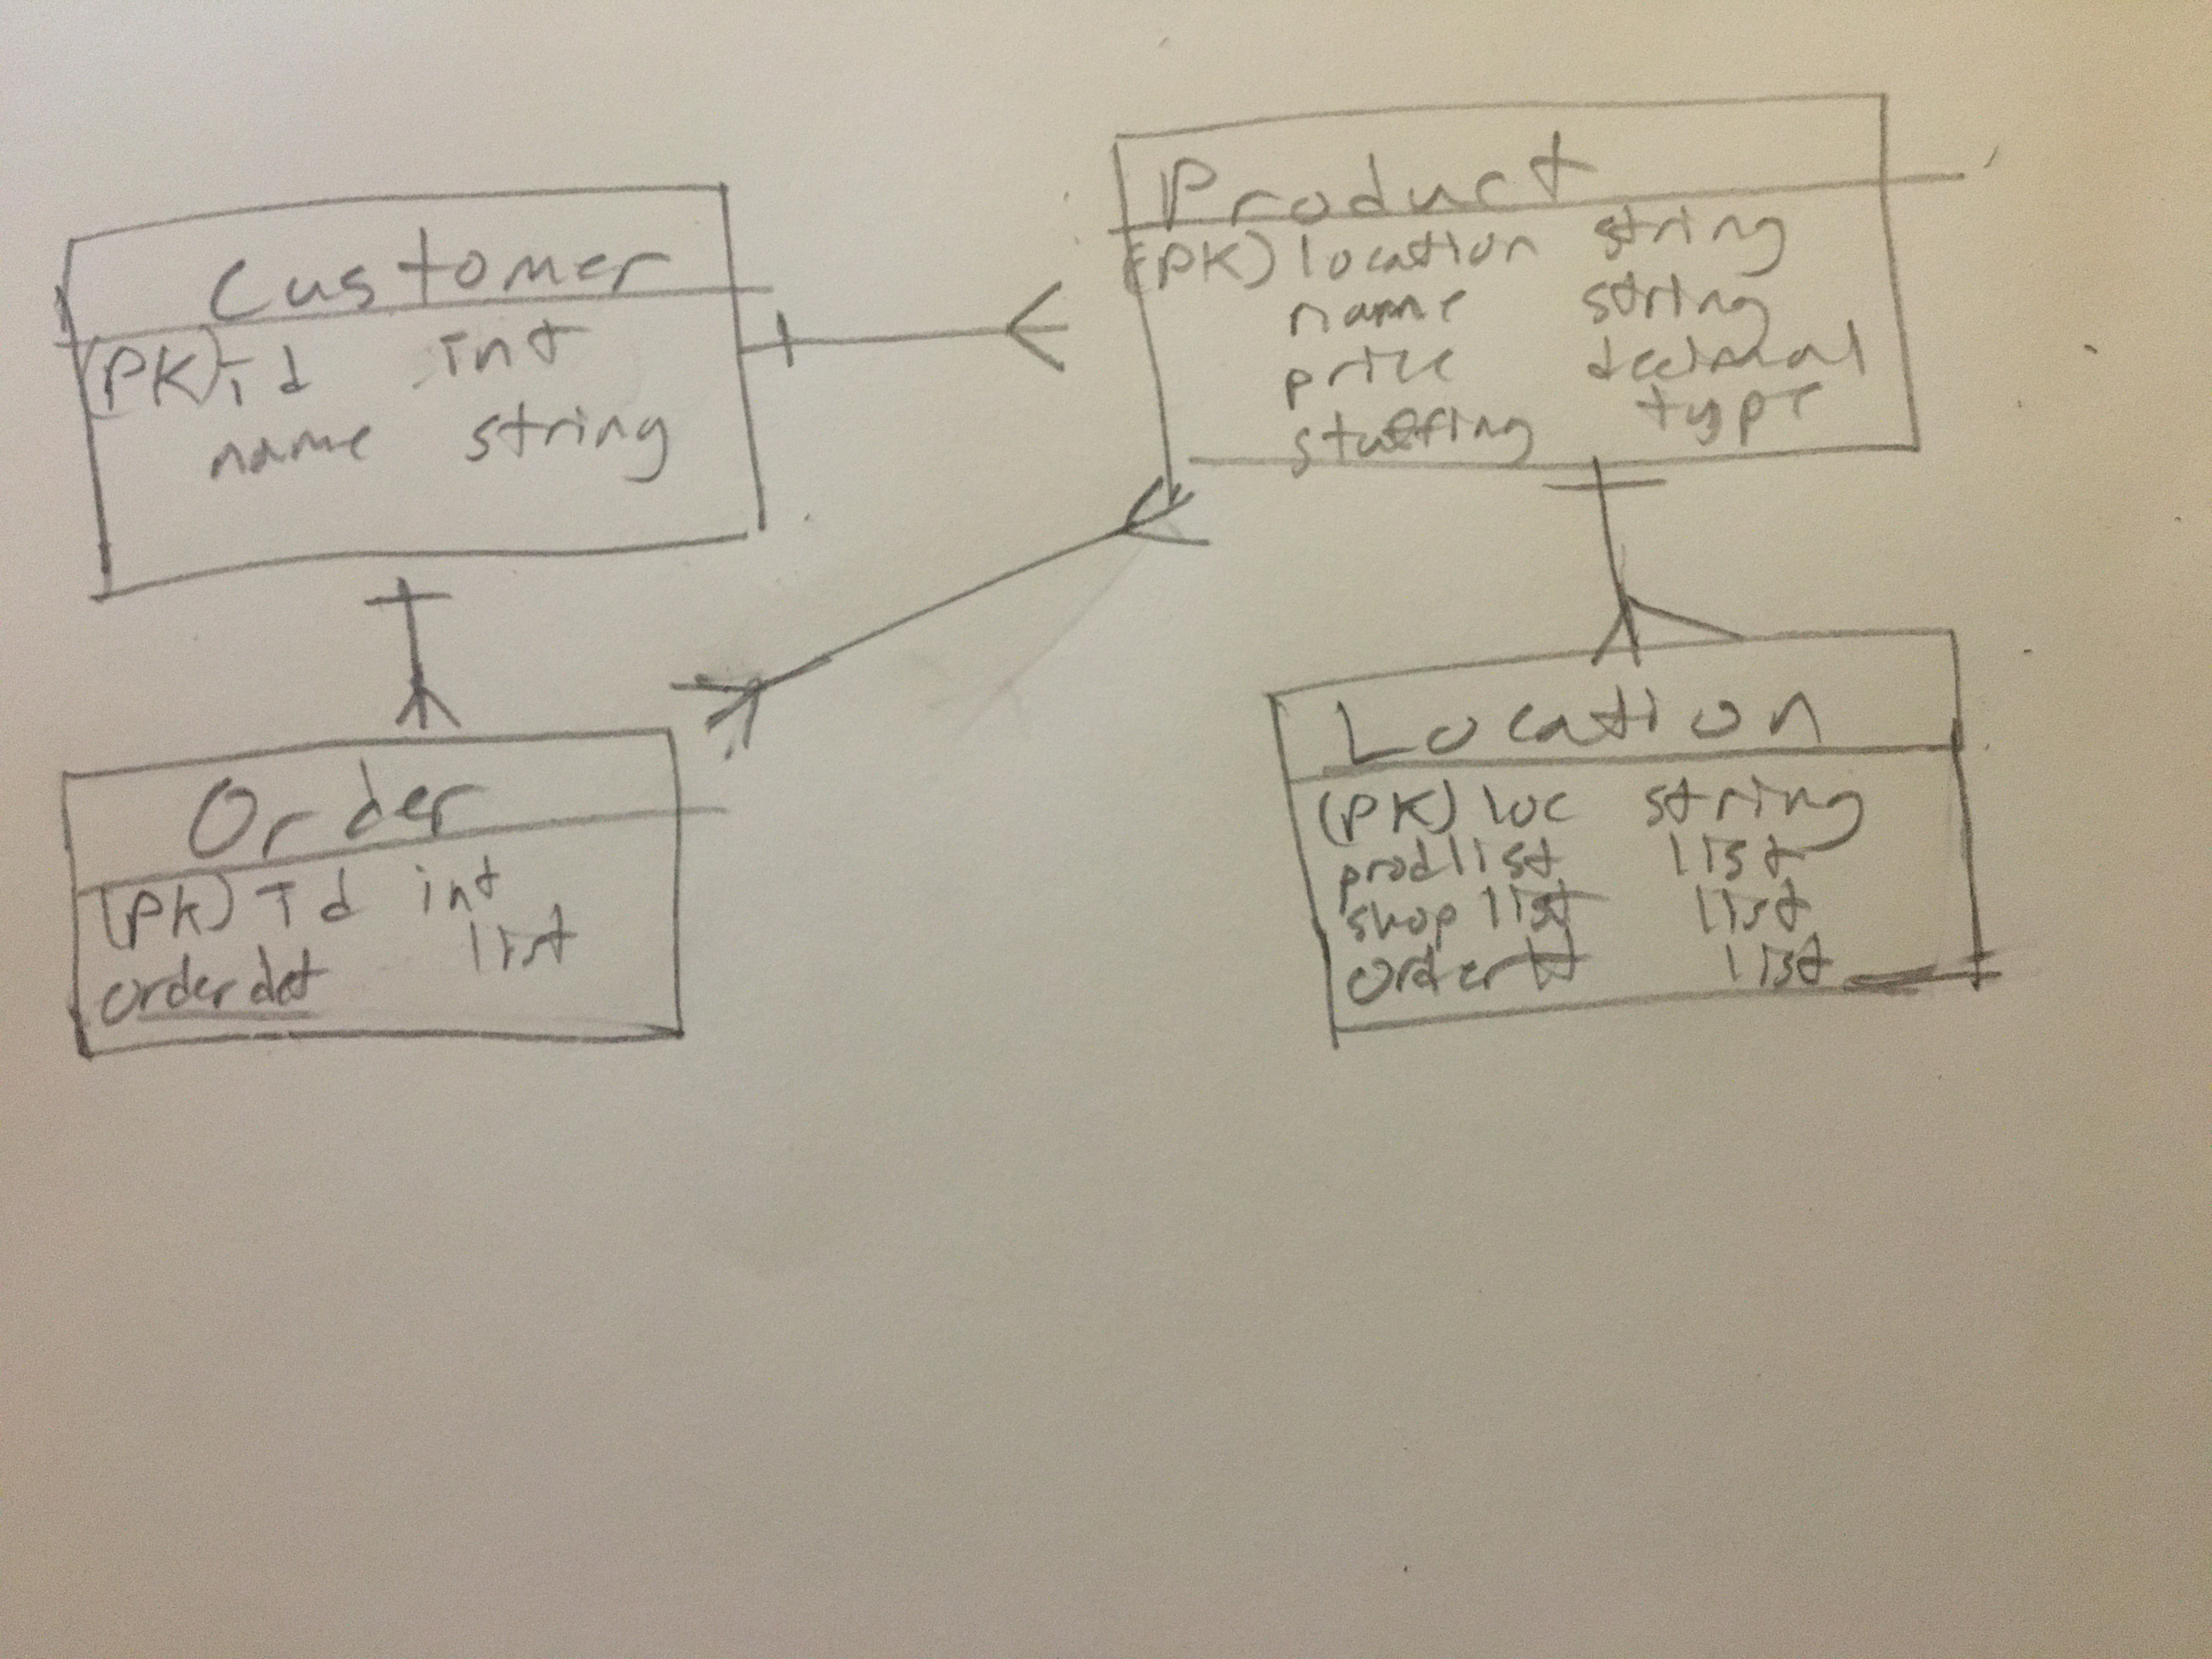 Customer
(PK) Id int
name string
Product
(PK) location string
name string
price decimal
stuffing type
Order
(PK) Id int
orderdet list
Location
(PK) loc string
prodlist list
shoplist list
order list